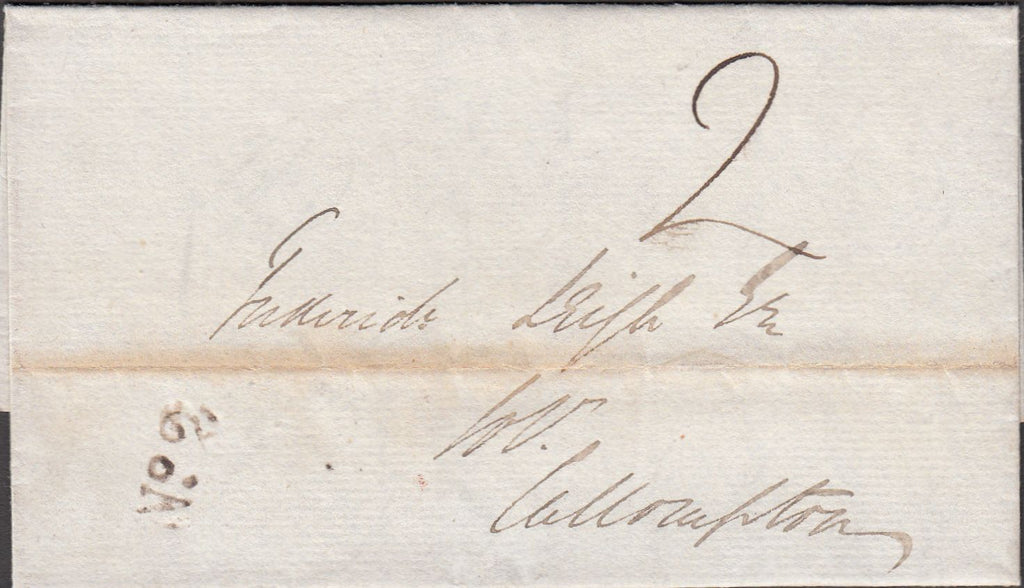 2
Frederick Leigh Esq
Sol.r
Cullompton
No. 6